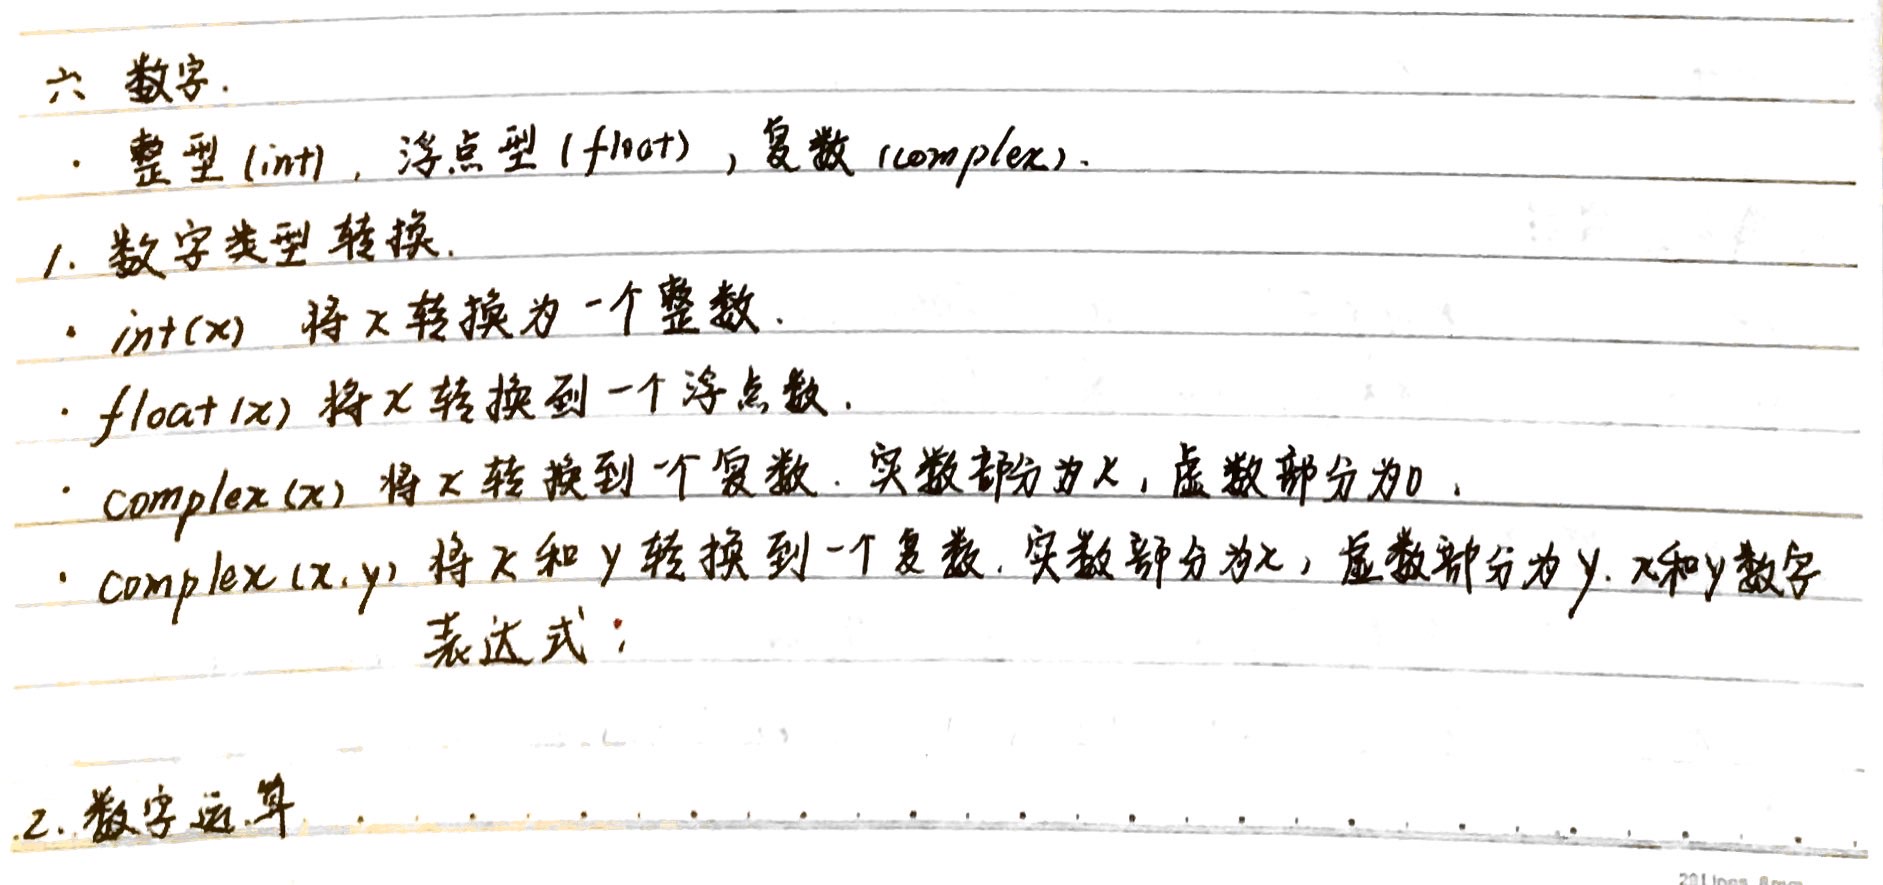 六 数字.
· 整型(int)，浮点型(float)，复数(complex).
1. 数字类型转换.
· int(x) 将x转换为一个整数.
· float(x) 将x转换到一个浮点数.
· complex(x) 将x转换到一个复数. 实数部分为x，虚数部分为0.
· complex(x,y) 将x和y转换到一个复数. 实数部分为x，虚数部分为y. x和y数字
表达式；
2. 数字运算